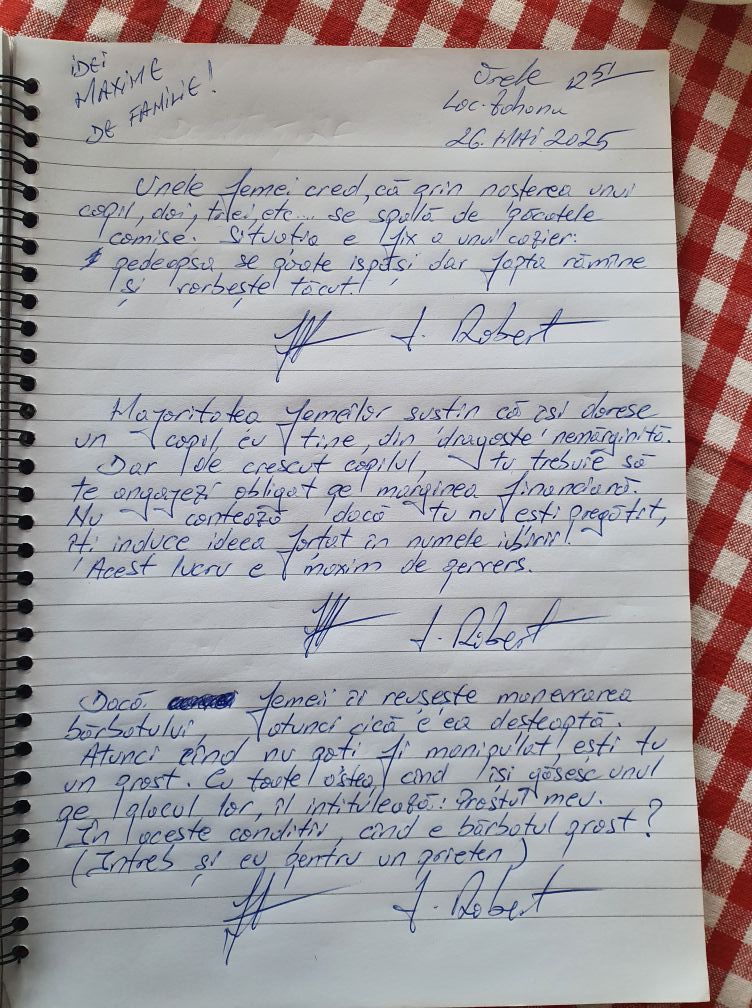 IDEI
MAXIME
DE FAMILIE!
Orele 12 51
Loc. Bohonu
26. MAI 2025
Unele femei cred, că prin nașterea unui
copil, doi, trei, etc... se spală de păcatele
comise. Situația e fix a unui cazier:
pedeapsa se poate ispăși dar fapta rămîne
și vorbește tăcut!
J. Robert
Majoritatea femeilor susțin că își doresc
un copil cu tine, din dragoste nemărginită.
Dar de crescut copilul, tu trebuie să
te angajezi obligat pe marginea financiară.
Nu contează dacă tu nu ești pregătit,
îți induce ideea forțat în numele iubirii!
Acest lucru e maxim de pervers.
J. Robert
Dacă femeii îi reușește manevrarea
bărbatului, atunci cică e ea deșteaptă.
Atunci cînd nu poți fi manipulat ești tu
un prost. Cu toate astea, cînd își găsesc unul
pe placul lor, îl intitulează: Prostul meu.
În aceste condiții, cînd e bărbatul prost?
(Întreb și eu pentru un prieten)
J. Robert